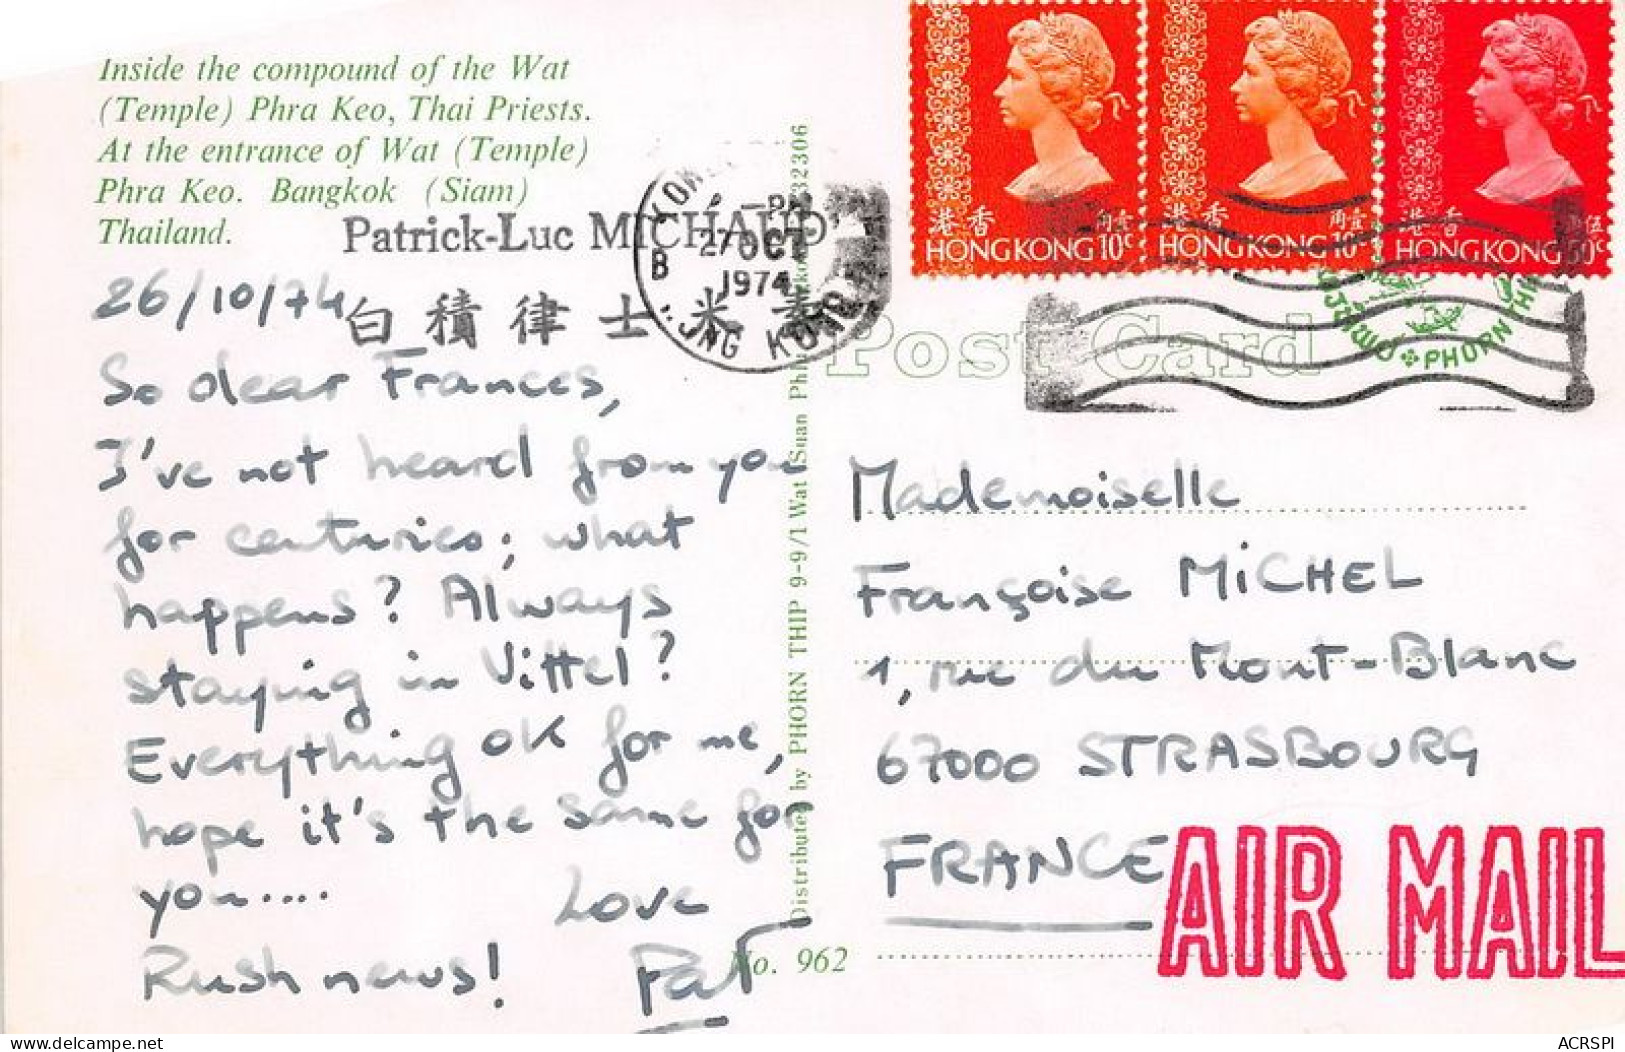 Inside the compound of the Wat
(Temple) Phra Keo, Thai Priests.
At the entrance of Wat (Temple)
Phra Keo. Bangkok (Siam)
Thailand.
Patrick-Luc MICHAUD
白積律士米素
27 OCT
1974
B
HONG KONG
26/10/74
So dear Frances,
I've not heard from you
for centuries; what
happens? Always
staying in Vittel?
Everything OK for me,
hope it's the same for
you....
Love
Rush news!
Pat
Distributed by PHORN THIP 9-9/1 Wat Suan 32306
No. 962
港香 角壹
HONG KONG 10c
港香 角壹
HONG KONG 10c
港香 伍
HONG KONG 50c
Post Card
PHORN THIP
Mademoiselle
Françoise MICHEL
1, rue du Mont-Blanc
67000 STRASBOURG
FRANCE
AIR MAIL
www.delcampe.net
ACRSPI